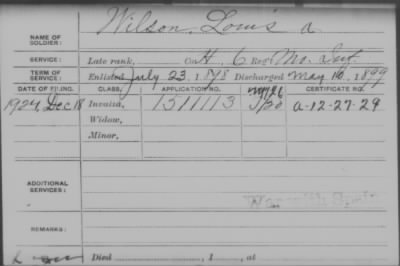 NAME OF SOLDIER: Wilson, Louis A
SERVICE: Late rank, Co H, 6 Reg't Mo. Inf.
TERM OF SERVICE: Enlisted July 23, 1898 Discharged May 10, 1899
DATE OF FILING. CLASS. APPLICATION NO. CERTIFICATE NO.
1924, Dec 18 Invalid, 1511113 A-12-27-29
Widow,
Minor,
ADDITIONAL SERVICES: War with Spain
REMARKS:
Died , 1 , at